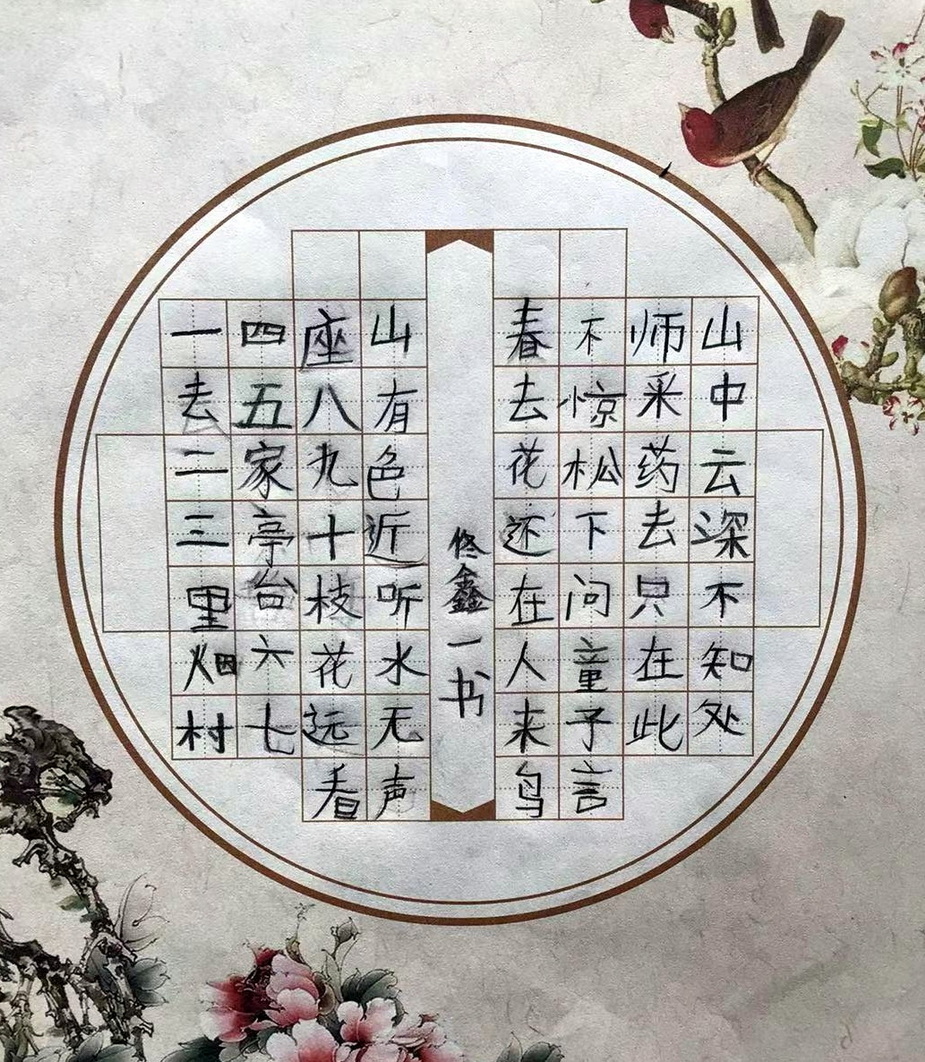 一去二三里烟村
四五家亭台六七
座八九十枝花远看
山有色近听水无声
佟鑫一书
春去花还在人来鸟
不惊松下问童予言
师采药去只在此
山中云深不知处